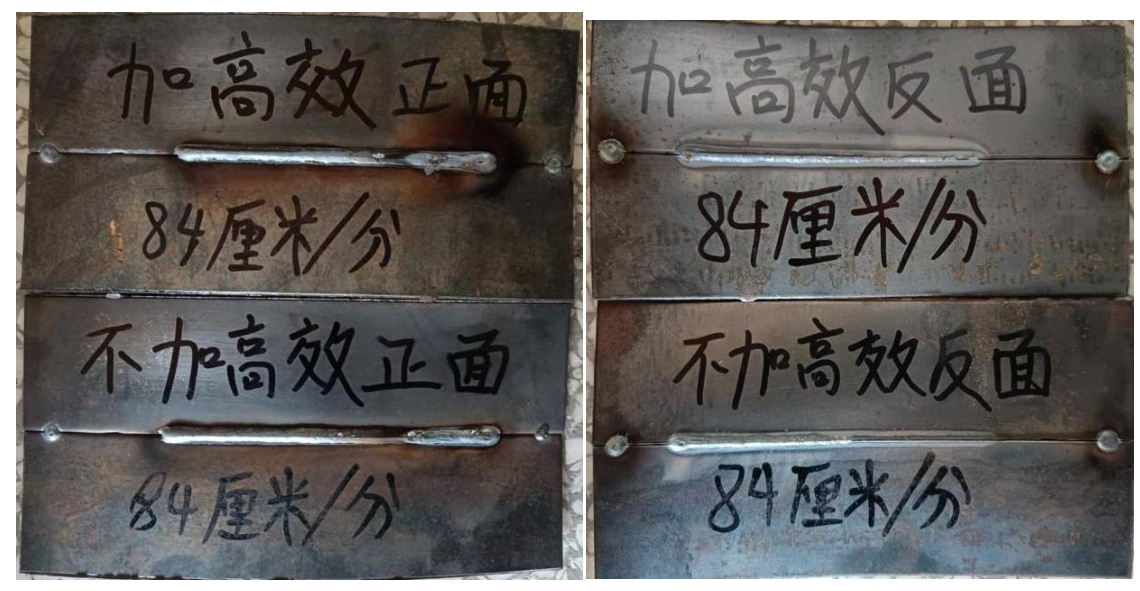 加高效正面
84厘米/分
不加高效正面
84厘米/分
加高效反面
84厘米/分
不加高效反面
84厘米/分